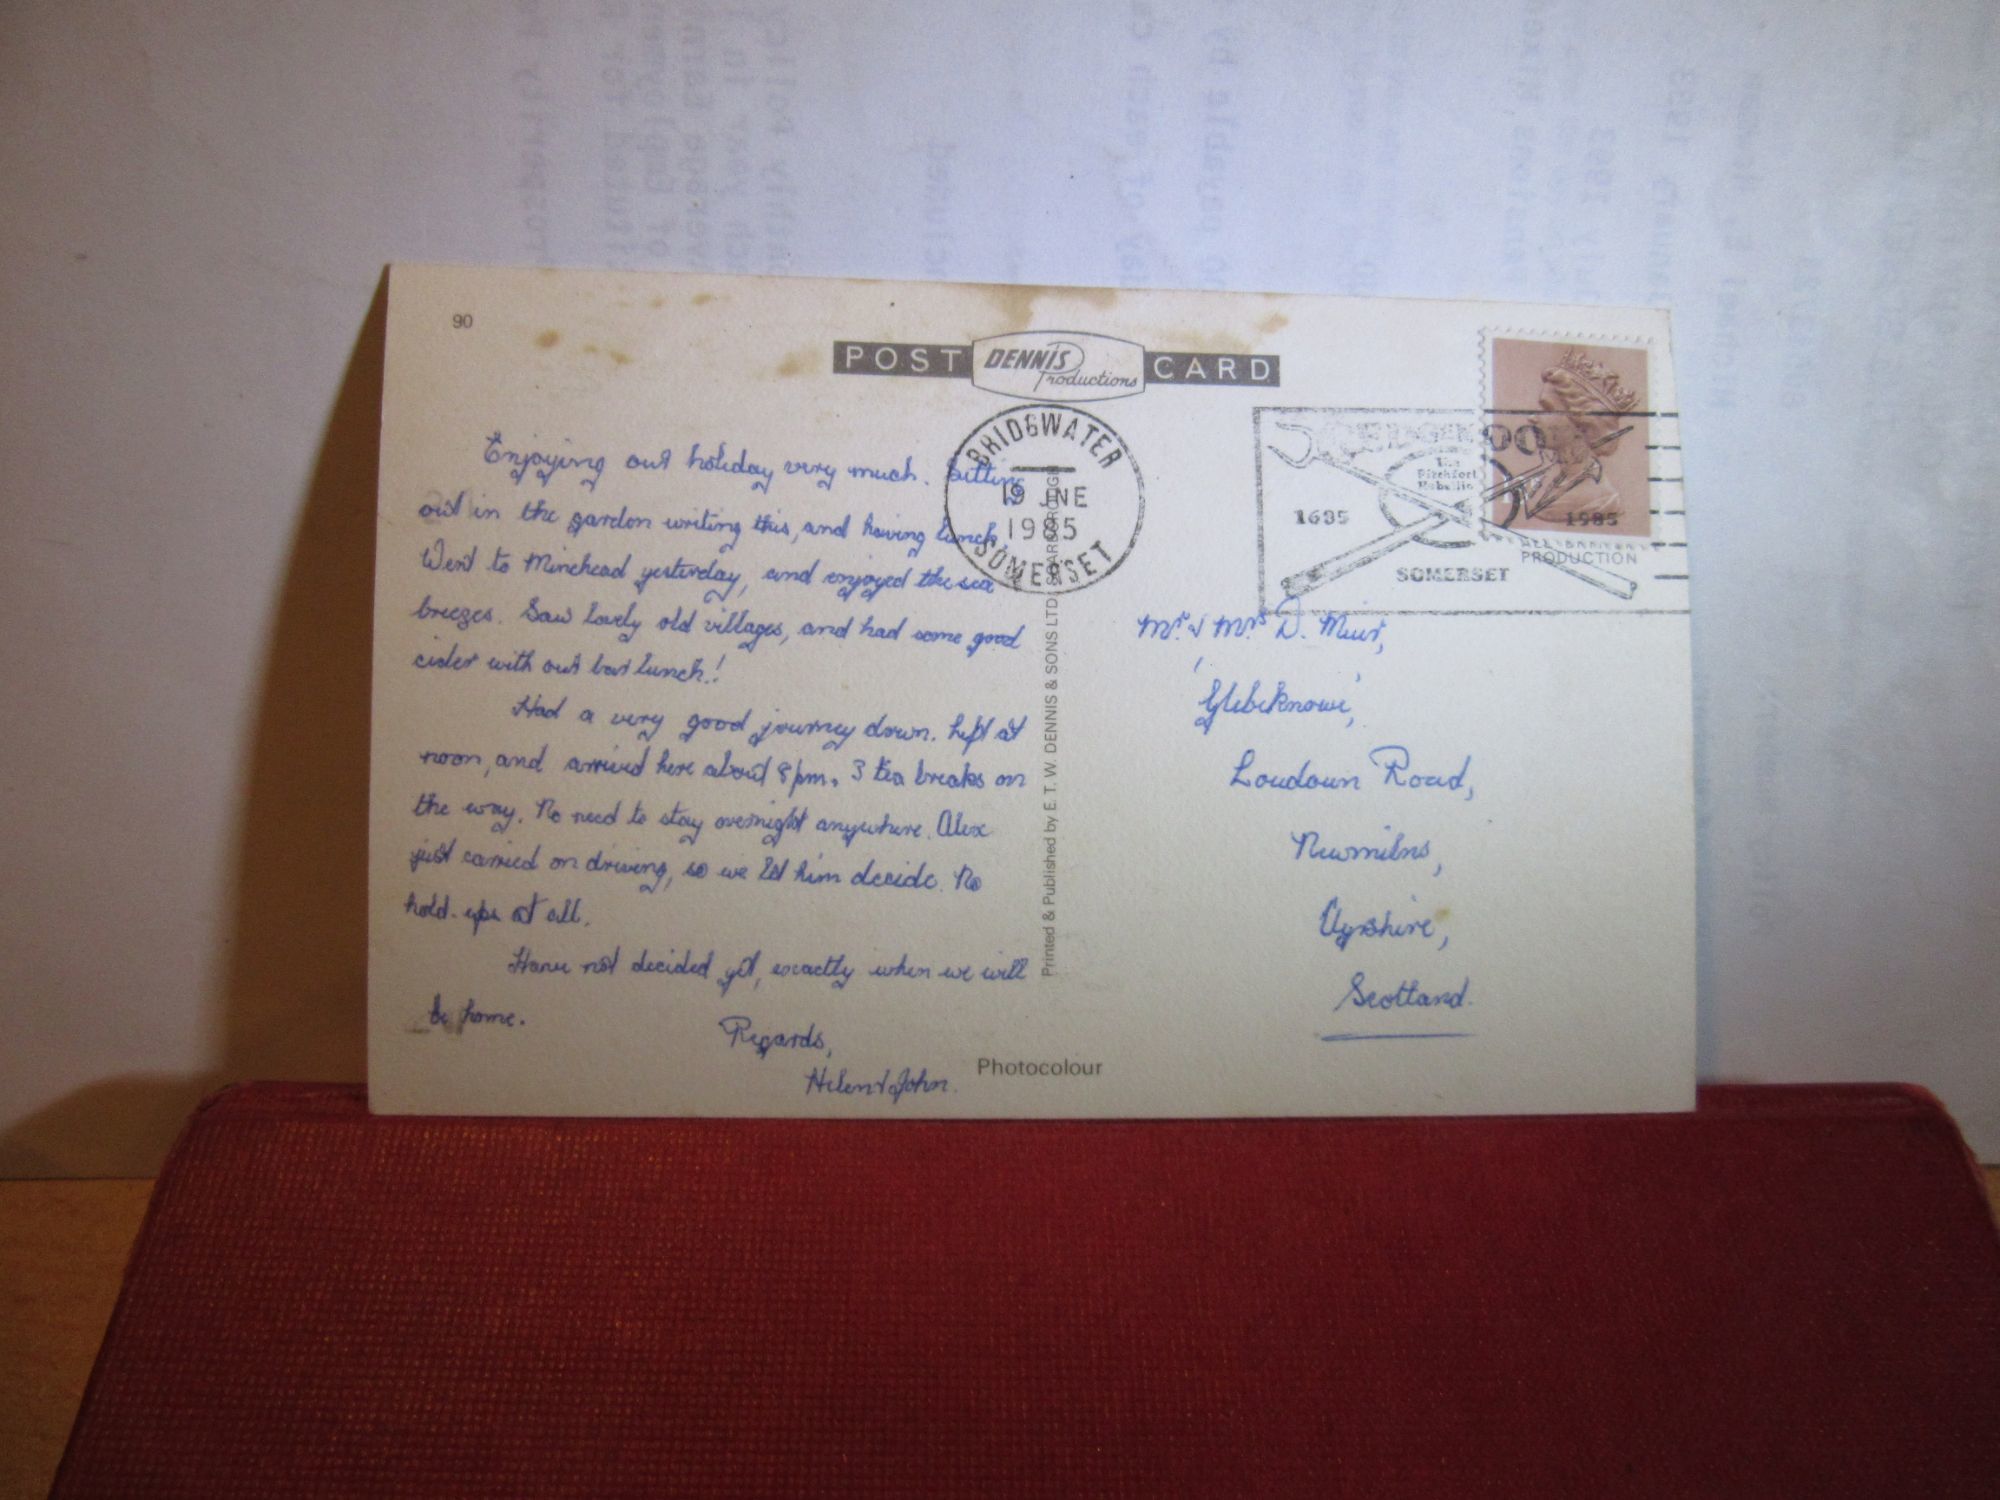 90
POST DENNIS Productions CARD
BRIDGWATER
19 JNE
1985
SOMERSET
The
Pitchfork
Rebellion
1685 1985
SOMERSET
PRODUCTION
Enjoying our holiday very much. Sitting
out in the garden writing this, and having lunch.
Went to Minehead yesterday, and enjoyed the sea
breezes. Saw lovely old villages, and had some good
cider with our bar lunch!
Had a very good journey down. Left at
noon, and arrived here about 8pm. 3 tea breaks on
the way. No need to stay overnight anywhere. Alex
just carried on driving, so we let him decide. No
hold-ups at all.
Have not decided yet, exactly when we will
be home.
Regards,
Helen & John.
Printed & Published by E. T. W. DENNIS & SONS LTD. SCARBOROUGH
Mr. & Mrs D. Muir,
'Glebeknowe',
Loudoun Road,
Newmilns,
Ayrshire,
Scotland.
Photocolour